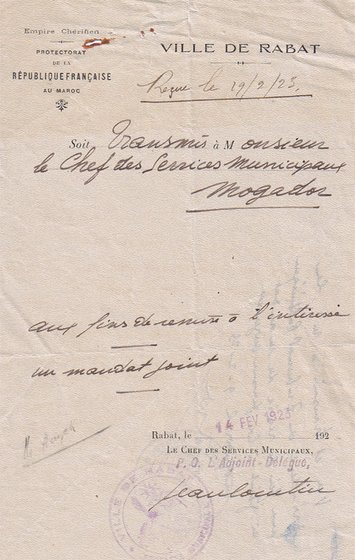 Empire Chérifien
PROTECTORAT
DE LA
RÉPUBLIQUE FRANÇAISE
AU MAROC
VILLE DE RABAT
Reçu le 19/2/23.
Soit Transmis à Monsieur
le Chef des Services Municipaux
Mogador
aux fins de remise à l'intéressé
un mandat joint
14 FEV 1923
Rabat, le 192
LE CHEF DES SERVICES MUNICIPAUX,
P. O. L'Adjoint-Délégué,
VILLE DE RABAT